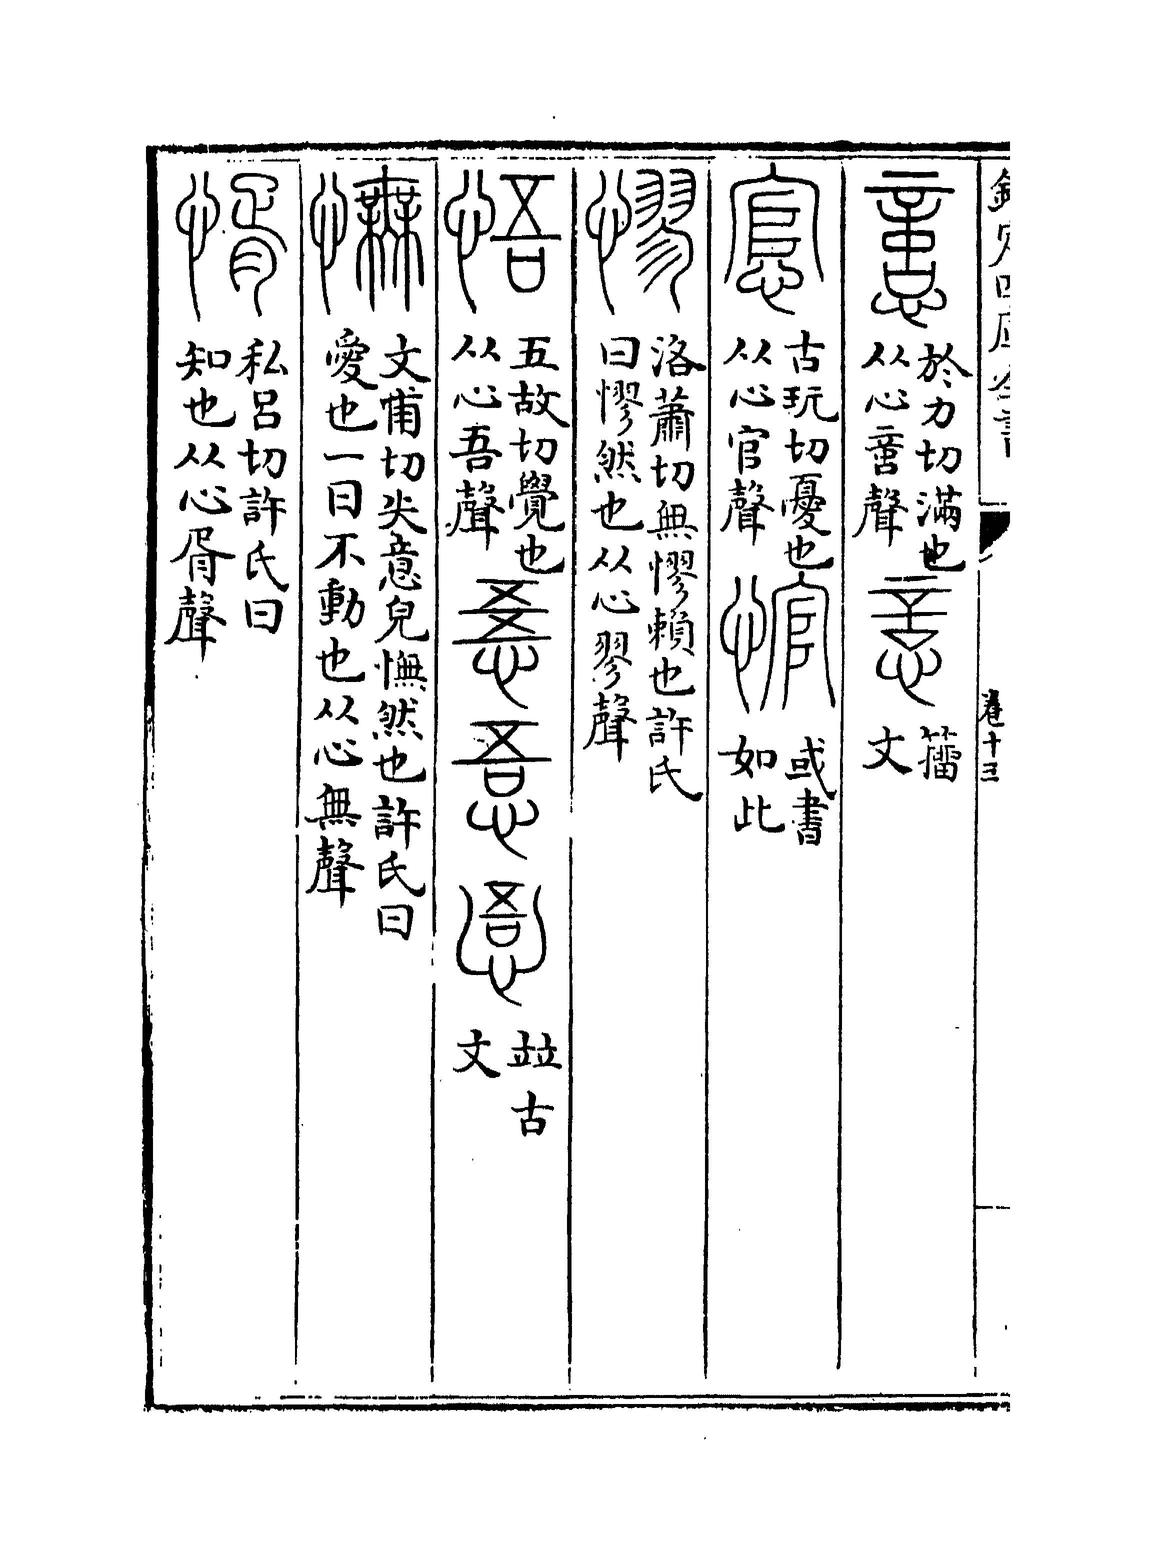 欽定四庫全書
卷十三
𢡃
於力切滿也
从心䇾聲
籒
文
悹
古玩切憂也
从心官聲
悺
或書
如此
憀
洛蕭切無憀賴也許氏
曰憀然也从心翏聲
悟
五故切覺也
从心吾聲
㣽
竝古
文
憮
文甫切失意皃憮然也許氏曰
愛也一曰不動也从心無聲
㥠
私呂切許氏曰
知也从心胥聲